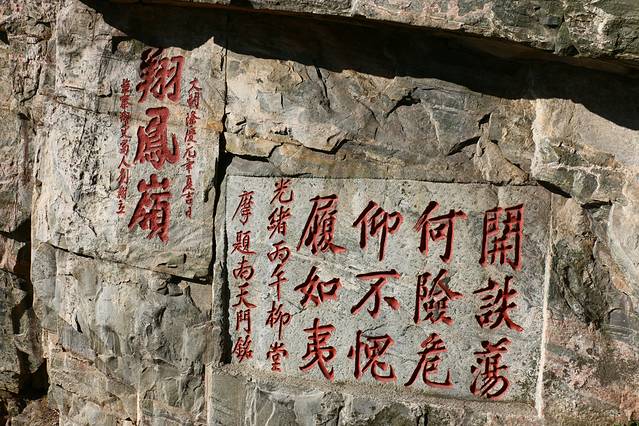 開詄蕩
何險危
仰不愧
履如夷
光緒丙午柳堂
摩題南天門銘
大明隆慶元年吉日
翔鳳嶺